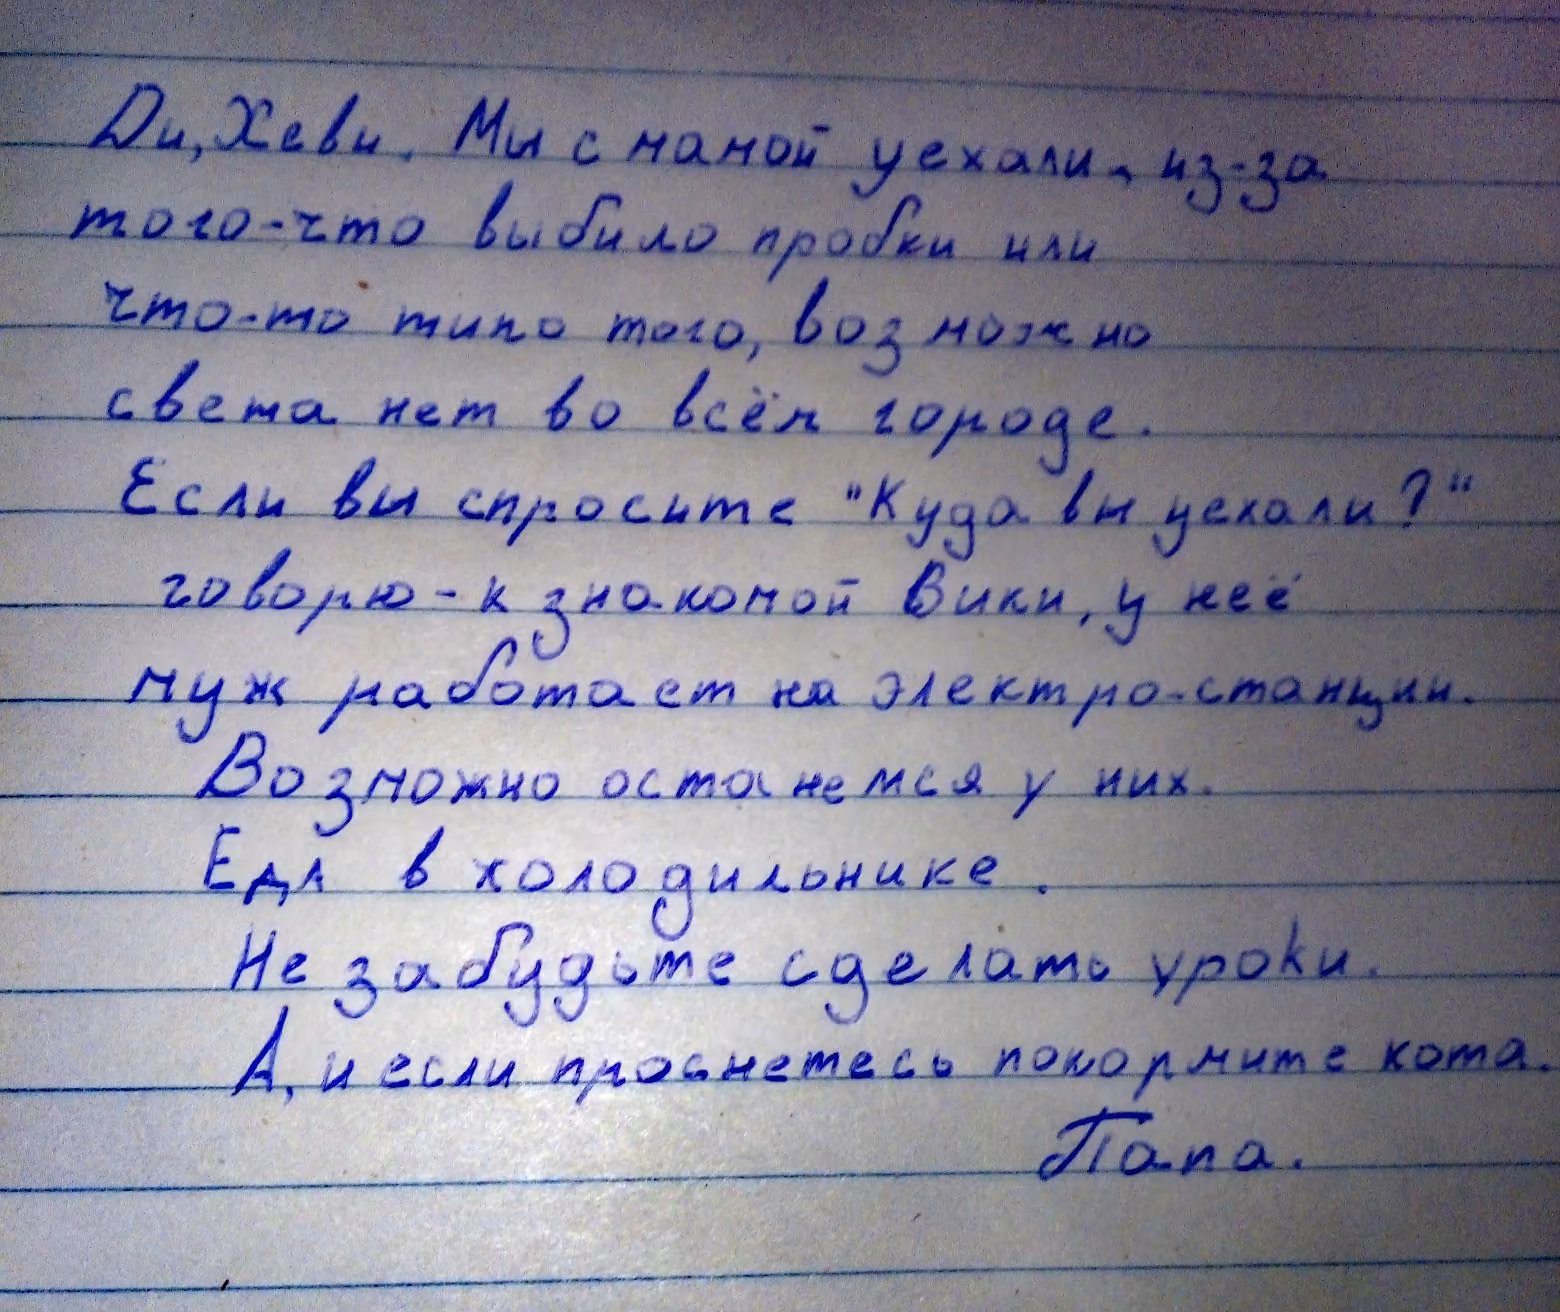 Ди, Хеви. Мы с мамой уехали, из-за
того-что выбило пробки или
что-то типо того, возможно
света нет во всём городе.
Если вы спросите "Куда вы уехали?"
говорю - к знакомой Вики, у неё
муж работает на электро-станции.
Возможно останемся у них.
Еда в холодильнике.
Не забудьте сделать уроки.
А, и если проснетесь покормите кота.
Папа.